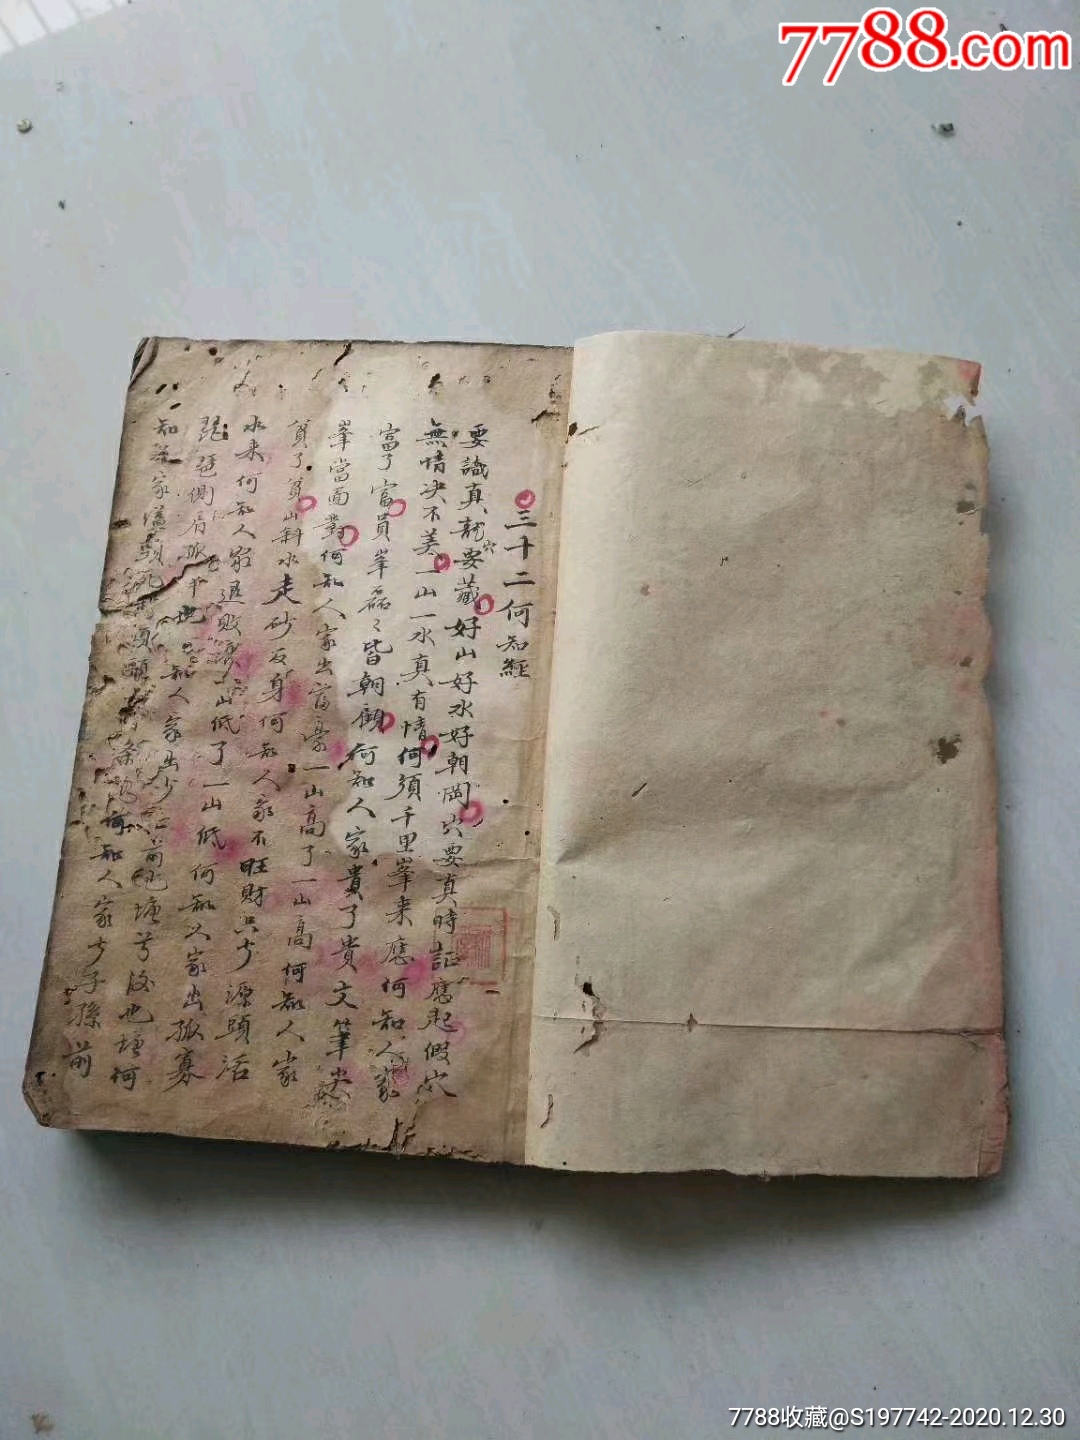 7788.com
三十二何知經
要識真龍穴要藏好山好水好朝岡穴要真時証應起假穴
無情决不美一山一水真有情何須千里峯来應何知人家
富了富員峯磊々皆朝顧何知人家貴了貴文筆尖
峯當面對何知人家出富豪一山高了一山高何知人家
貧了貧山斜水走砂反身何知人家不旺財只少源頭活
水来何知人家退敗山低了一山低何知人家出孤寡
琵琶側肩孤平也知人家出少前也塘兮後也塘何
知家何知人家少子孫前
7788收藏@S197742-2020.12.30